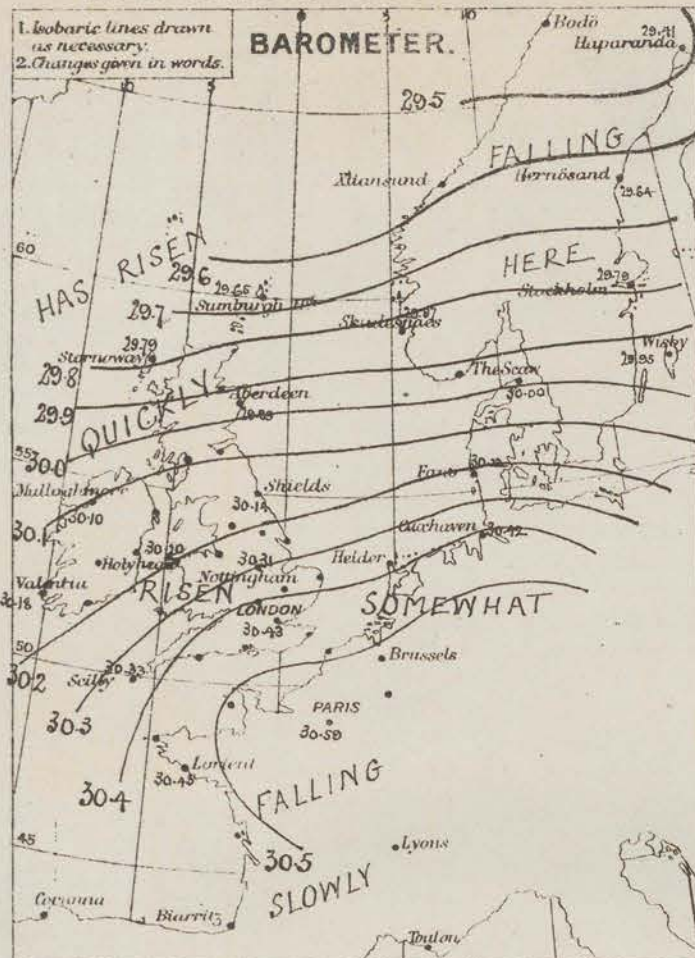 1. Isobaric lines drawn
as necessary.
2. Changes given in words.
BAROMETER.
10
5
5
10
Bodö
29.41
Haparanda
29.5
FALLING
Xtiansund
Hernösand
29.64
60
HAS RISEN
29.6
29.65
Sumburgh Hd.
HERE
29.79
Stockholm
29.7
29.87
Skudesnaes
29.79
Stornoway
Wisby
29.95
29.8
The Scaw
30.00
29.9
QUICKLY
Aberdeen
29.89
55
30.0
Mulloghmore
30.10
Shields
30.14
Fano
30.1
Cuxhaven
30.42
30.20
Holyhead
30.31
Nottingham
Helder
Valentia
30.18
RISEN
SOMEWHAT
LONDON
30.43
50
30.2
30.33
Scilly
Brussels
30.3
PARIS
30.59
Lorient
30.45
30.4
FALLING
45
30.5
Lyons
SLOWLY
Corunna
Biarritz
Toulon